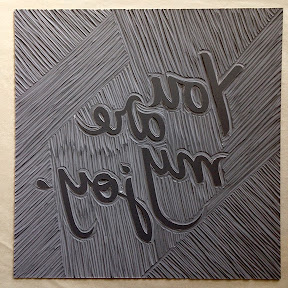 You
are
my
joy.